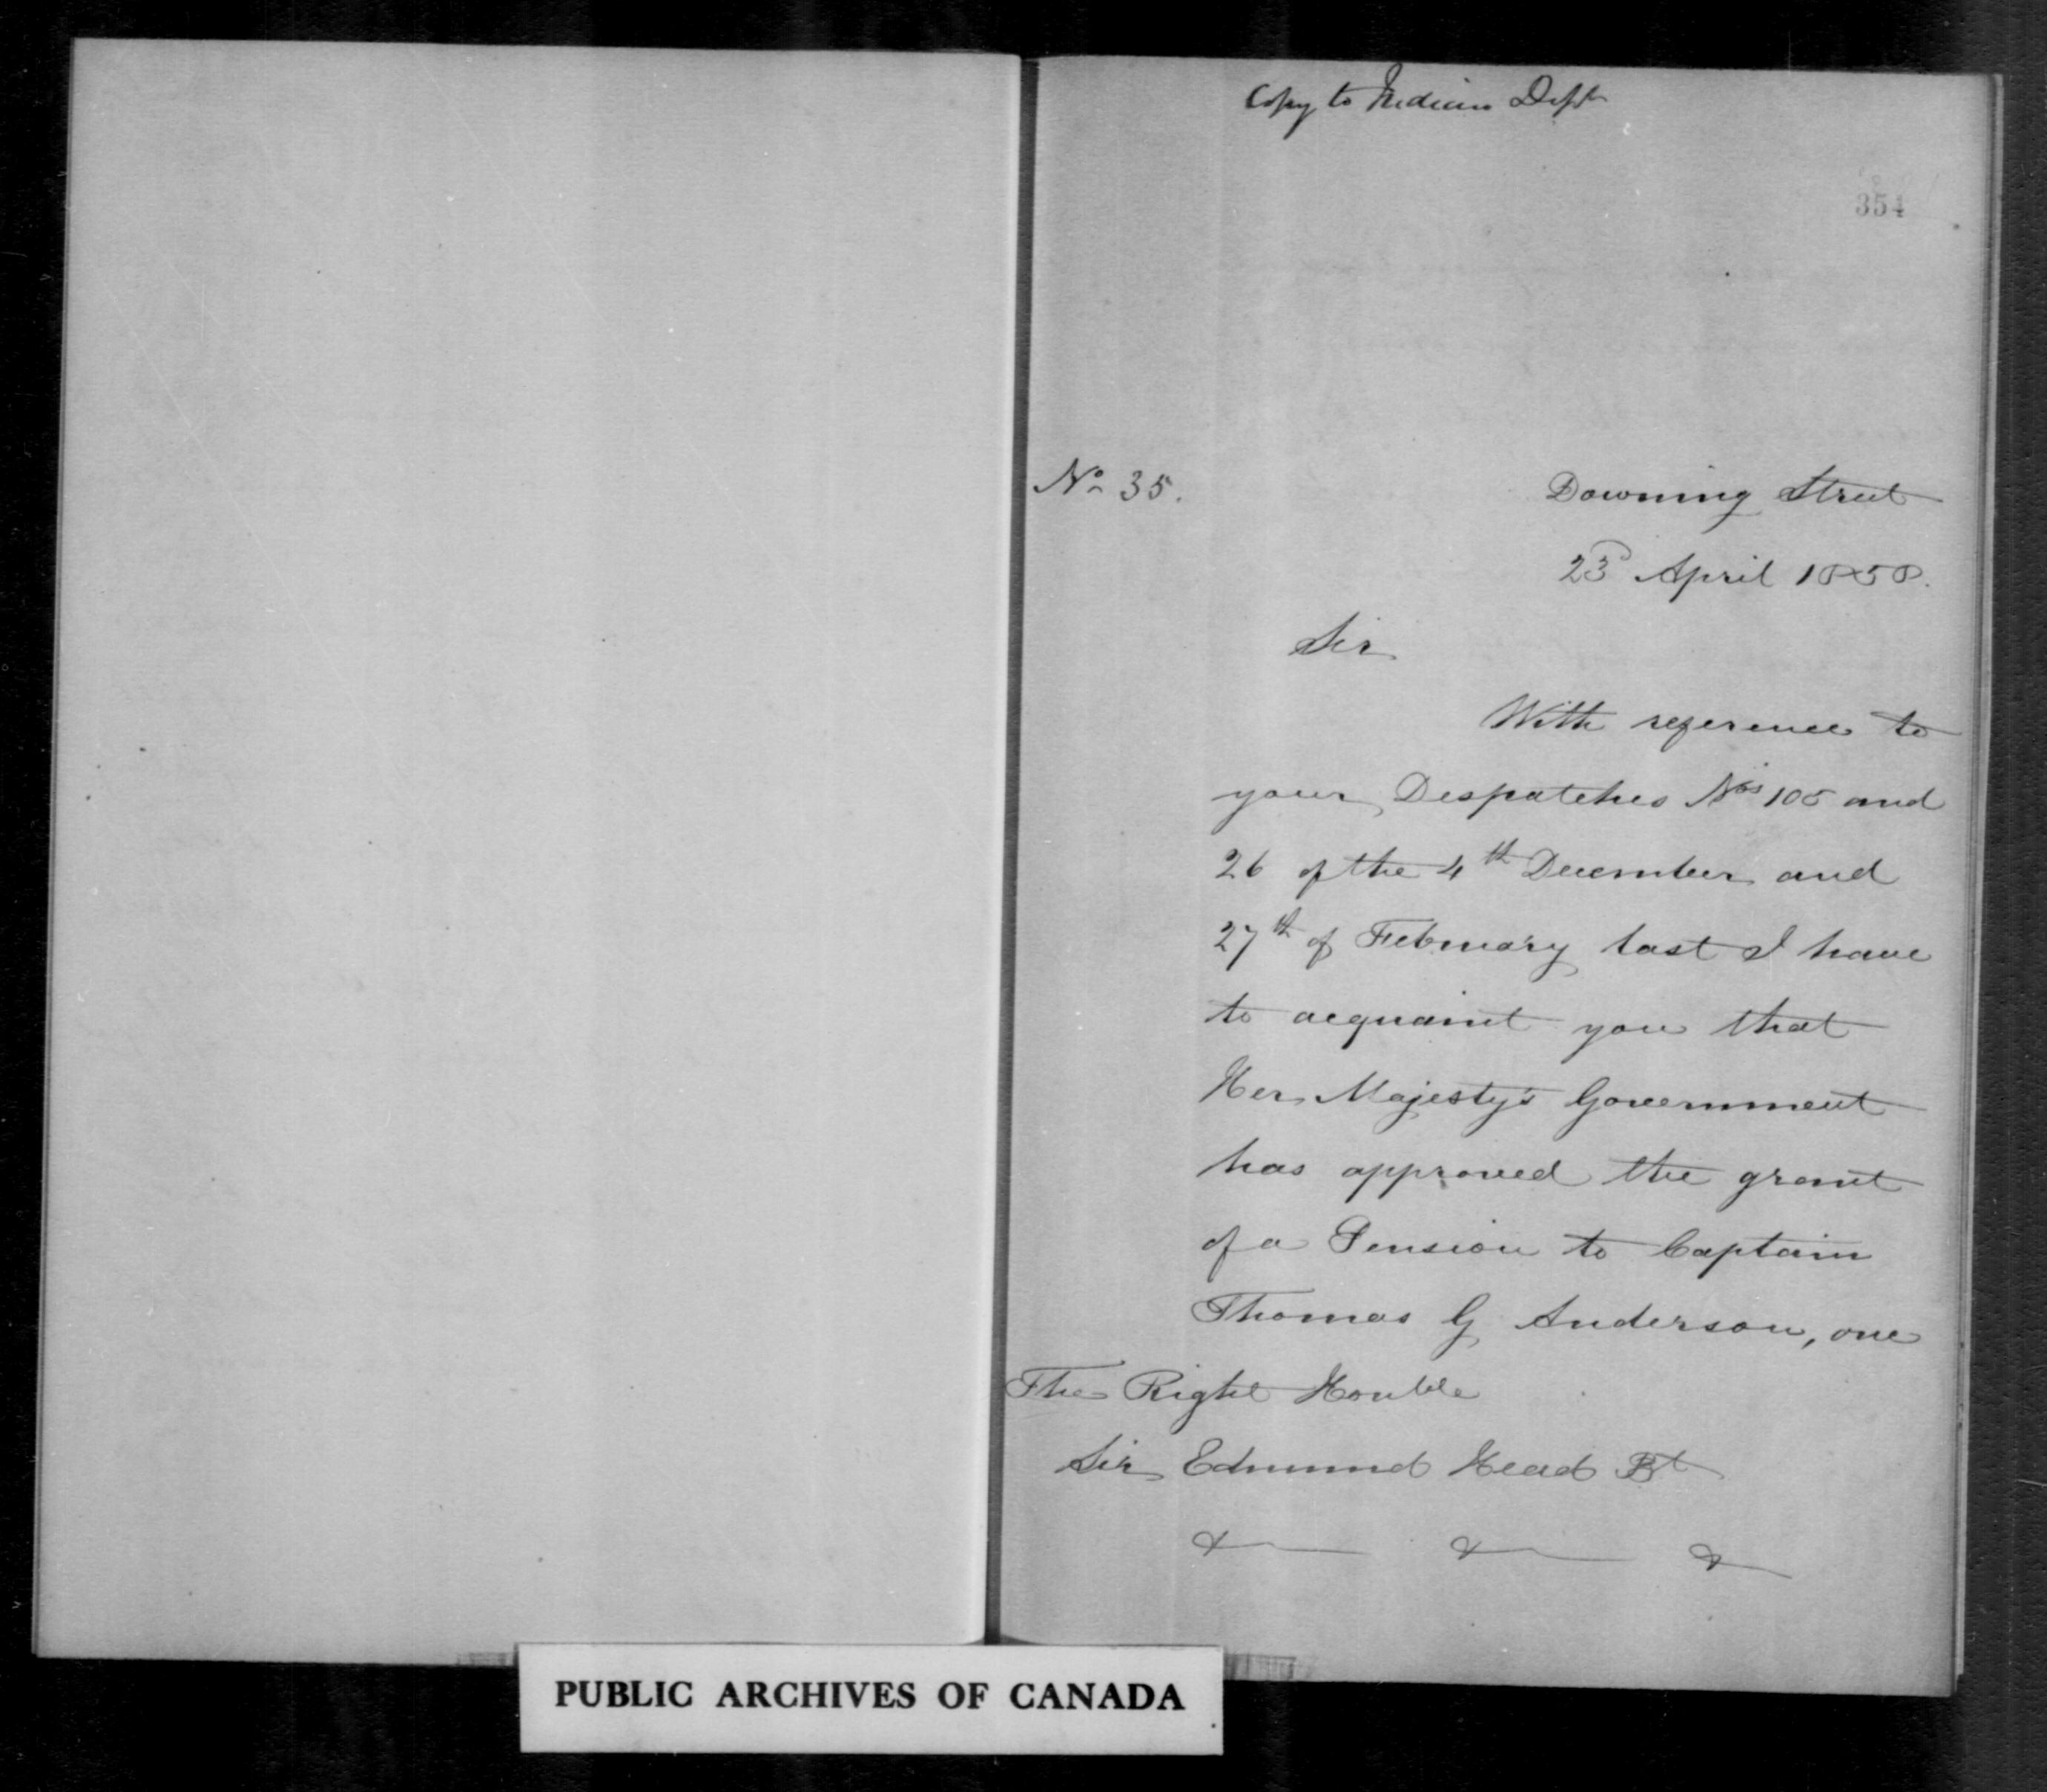 Copy to Indian Dept
354
No 35.
Downing Street
23d April 1858.
Sir
With reference to
your Despatches Nos 105 and
26 of the 4th December and
27th of February last I have
to acquaint you that
Her Majesty's Government
has approved the grant
of a Pension to Captain
Thomas G Anderson, one
The Right Honble
Sir Edmund Head Bt
& & &
PUBLIC ARCHIVES OF CANADA